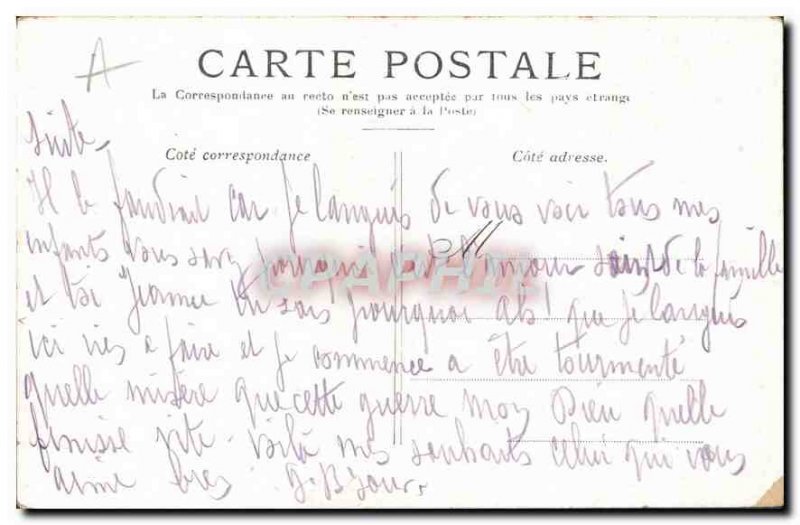 A
CARTE POSTALE
La Correspondance au recto n'est pas acceptée par tous les pays étrange
(Se renseigner à la Poste)
Suite,
Coté correspondance
Côté adresse.
Il le faudrait car je languis de vous voir tous mes
enfants vous savez pourquoi amour de la famille
et toi Jeanne tu sais pourquoi ah! que je languis
ici rien a faire et je commence a être tourmenté
quelle misère que cette guerre mon Dieu quelle
finisse vite. voilà mes souhaits celui qui vous
aime
CPAPHIL